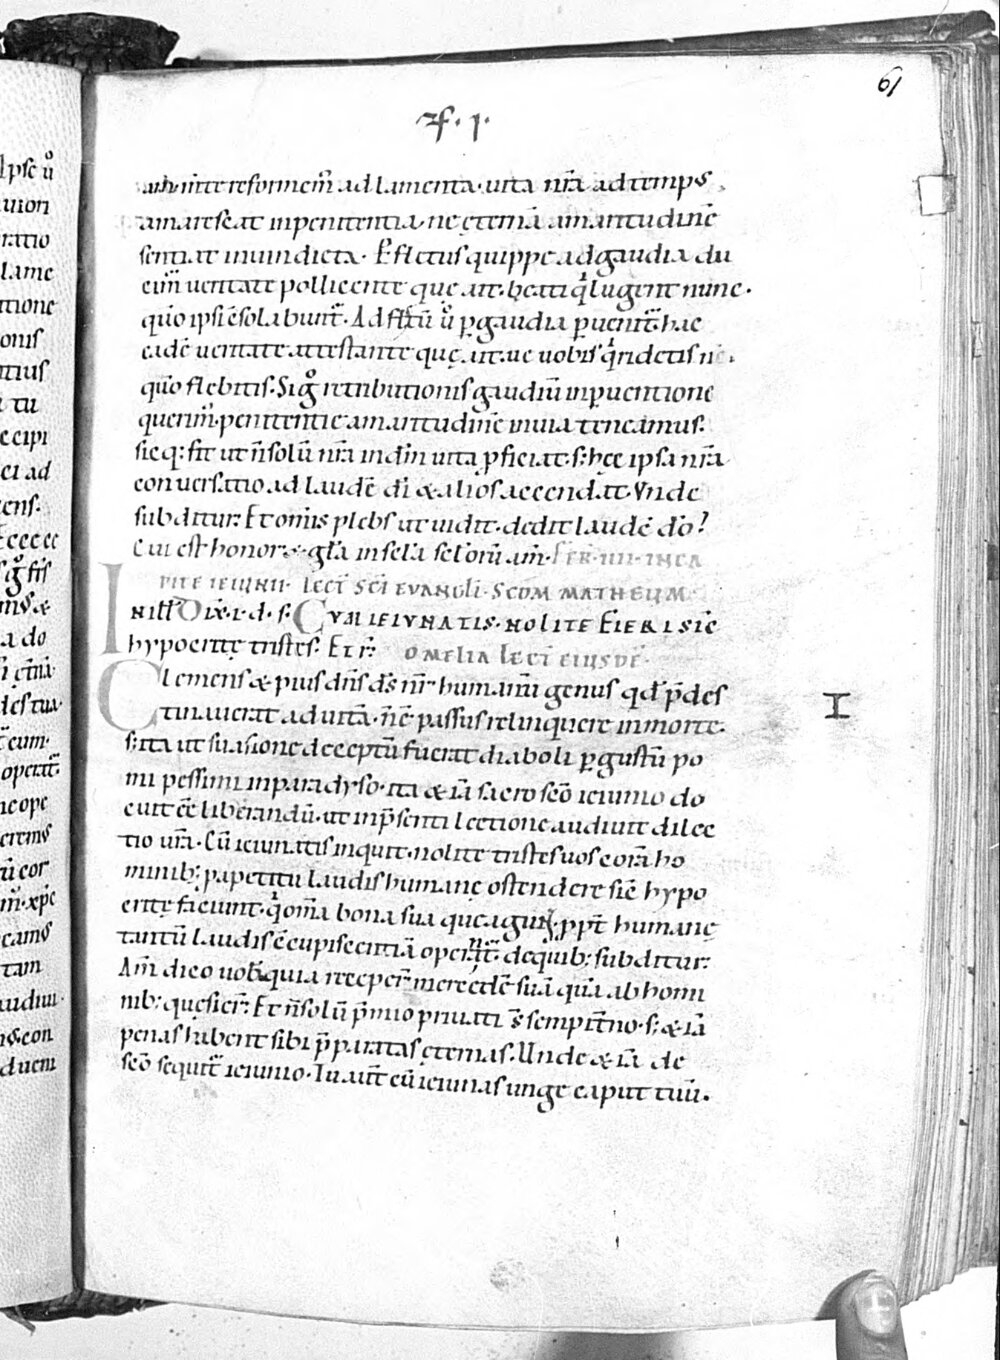 61
ipse ů
ratio
lame
onis
tu
ei ad
ens.
a do
eū cor
tam
ſ. con
dueni
mente reformem᷒ ad lamenta. uita nr̄a ad temp᷒
amarescat in penitentia. ne ęternā amaritudinē
sentiat in uindicta. Per fletus quippe ad gaudia du
cim᷒ ueritate pollicente que ait. beati qͥ lugent nunc.
qm̄ ipsi c̄solabunt᷒. Ad fletū ů p̲ gaudia p̲uenit᷒. hac
eadē ueritate attestante quę ait. ue uobis qͥ ridetis nc̄.
qm̄ flebitis. Si g̊ retributionis gaudiū in p̲uentione
querim᷒. penitentie amaritudinē in uia teneamus.
sicq: fit ut n̄ solū nr̄a in dn̄m uita p̲ficiat. s; hęc ipsa nr̄a
conuersatio ad laudē dī & alios accendat. Vnde
subditur. Et omīs plebs ut uidit. dedit laudē dō?
Cui est honor & gl̄a in sc̄la sc̄lorū am̄. FER. IIII. IN CA
PITE IEIUNII. LECT̄ SC̄I EVANGLĪ. SCDM MATHEUM.
IN ILL̄ Dix̄. i. d. s. CVM IEIVNATIS. NOLITE FIERI SIC̄
hypocritę tristes. Et r̄. OMELIA LECT̄ EIUSDĒ.
Clemens & pius dn̄s d̄s nr̄ humanū genus qd̄ p̄des
tinauerat ad uitā. n̄ ē passus relinquere in morte.
s; ita ut suasione deceptū fuerat diaboli p̲ gustū po
mi pessimi in paradyso. ita & iā sacro sc̄o ieiunio do
cuit ēē liberandū. ut in p̄senti lectione audiuit dilec
tio ur̄a. Cū ieiunatis inquit. nolite tristes uos corā ho
minib; p̲ apetitū laudis humanę ostendere sic̄ hypo
critę faciunt. qͥ om̄a bona sua que agunt. ppt̄ humanę
tantū laudis c̄cupiscentiā operant᷒. de quib; subditur.
Am̄ dico uob̄. quia receper̄ mercedē suā quā ab homi
nib; quesier̄. Et n̄ solū p̄mio priuati s̄ sempit̄no. s; & iā
penas habent sibi p̄paratas ęternas. Unde & iā de
sc̄o sequit᷒ ieiunio. Tu aut̄ cū ieiunas unge caput tuū.
I